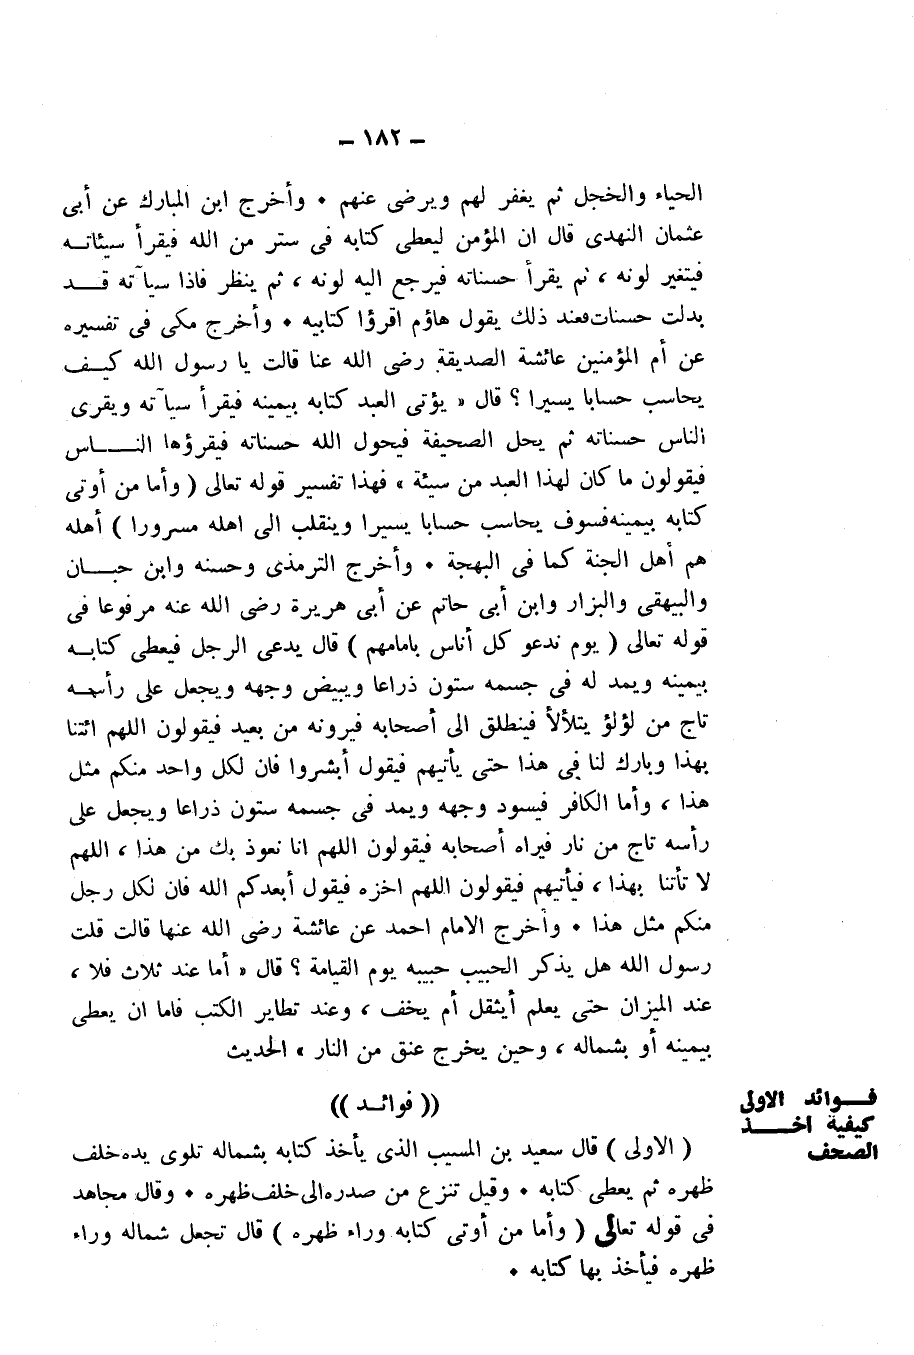 – ١٨٢ –
الحياء والخجل ثم يغفر لهم ويرضى عنهم • وأخرج ابن المبارك عن أبى
عثمان النهدى قال ان المؤمن ليعطى كتابه فى ستر من الله فيقرأ سيئاتــه
فيتغير لونه ، ثم يقرأ حسناته فيرجع اليه لونه ، ثم ينظر فاذا سيآته قــــد
بدلت حسنات فعند ذلك يقول هاؤم اقرؤا كتابيه • وأخرج مكى فى تفسيره
عن أم المؤمنين عائشة الصديقة رضى الله عنا قالت يا رسول الله كيــف
يحاسب حسابا يسيرا ؟ قال « يؤتى العبد كتابه بيمينه فيقرأ سيآته ويقرى
الناس حسناته ثم يحل الصحيفة فيحول الله حسناته فيقرؤها النـــــاس
فيقولون ما كان لهذا العبد من سيئة » فهذا تفسير قوله تعالى ( وأما من أوتى
كتابه بيمينه فسوف يحاسب حسابا يسيرا وينقلب الى اهله مسرورا ) أهله
هم أهل الجنة كما فى البهجة • وأخرج الترمذى وحسنه وابن حبــــان
والبيهقى والبزار وابن أبى حاتم عن أبى هريرة رضى الله عنه مرفوعا فى
قوله تعالى ( يوم ندعو كل أناس بامامهم ) قال يدعى الرجل فيعطى كتابــه
بيمينه ويمد له فى جسمه ستون ذراعا ويبيض وجهه ويجعل على رأســه
تاج من لؤلؤ يتلألأ فينطلق الى أصحابه فيرونه من بعيد فيقولون اللهم ائتنا
بهذا وبارك لنا فى هذا حتى يأتيهم فيقول أبشروا فان لكل واحد منكم مثل
هذا ، وأما الكافر فيسود وجهه ويمد فى جسمه ستون ذراعا ويجعل على
رأسه تاج من نار فيراه أصحابه فيقولون اللهم انا نعوذ بك من هذا ، اللهم
لا تأتنا بهذا ، فيأتيهم فيقولون اللهم اخزه فيقول أبعدكم الله فان لكل رجل
منكم مثل هذا • وأخرج الامام احمد عن عائشة رضى الله عنها قالت قلت
رسول الله هل يذكر الحبيب حبيبه يوم القيامة ؟ قال « أما عند ثلاث فلا ،
عند الميزان حتى يعلم أيثقل أم يخف ، وعند تطاير الكتب فاما ان يعطى
بيمينه أو بشماله ، وحين يخرج عنق من النار » الحديث
(( فوائــد ))
فــوائد الاولى
كيفية اخــــذ
الصحف
( الاولى ) قال سعيد بن المسيب الذى يأخذ كتابه بشماله تلوى يده خلف
ظهره ثم يعطى كتابه • وقيل تنزع من صدره الى خلف ظهره • وقال مجاهد
فى قوله تعالى ( وأما من أوتى كتابه وراء ظهره ) قال تجعل شماله وراء
ظهره فيأخذ بها كتابه •